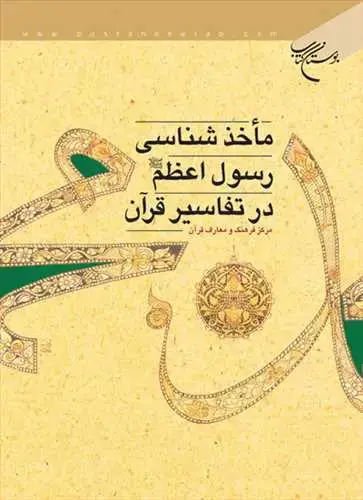 www.bustaneketab.com
بوستان کتاب
مأخذ شناسی
رسول اعظم ﷺ
در تفاسیر قرآن
مرکز فرهنگ و معارف قرآن